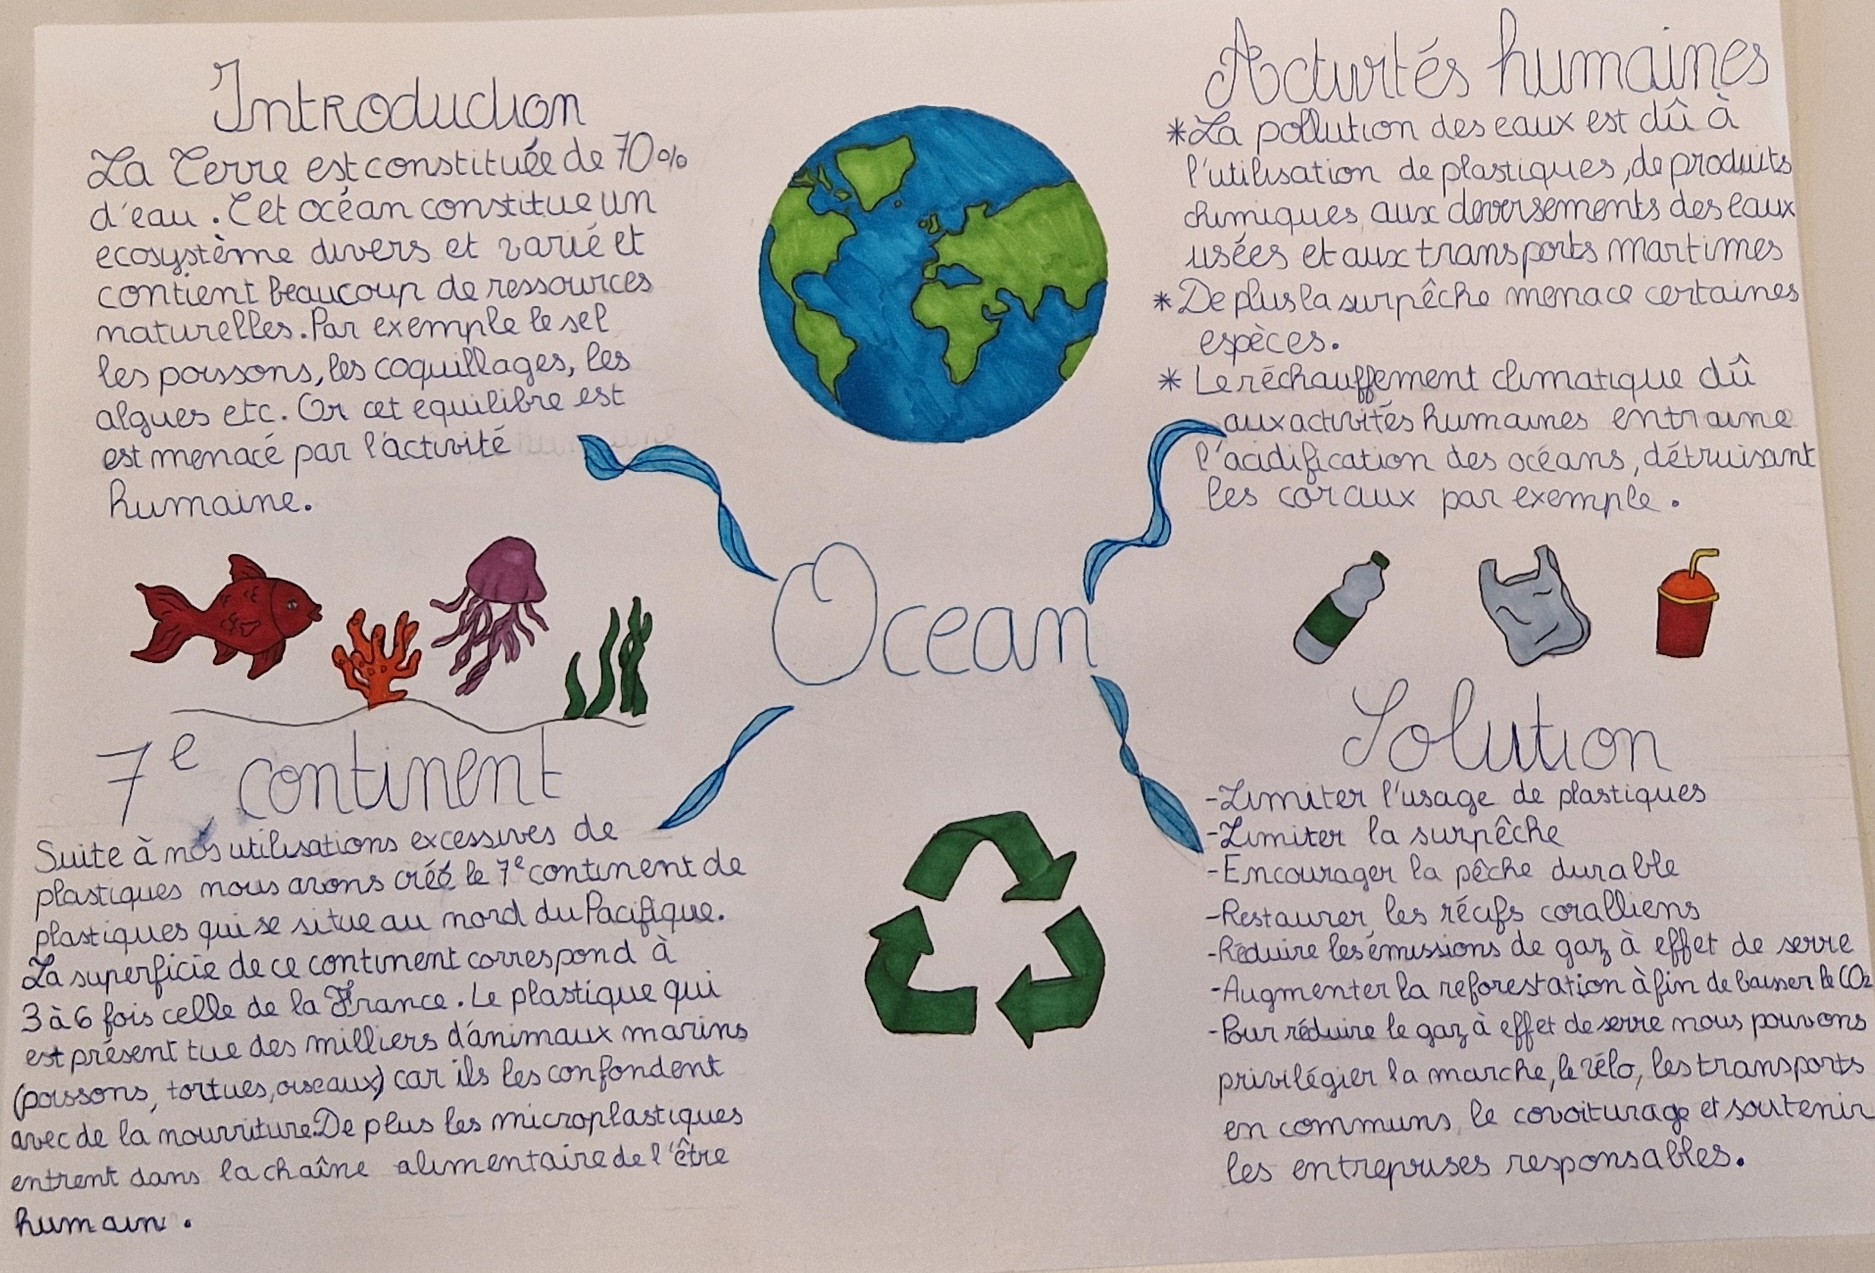 Introduction
La Terre est constituée de 70%
d'eau. Cet océan constitue un
ecosystème divers et varié et
contient beaucoup de ressources
naturelles. Par exemple le sel
les poissons, les coquillages, les
algues etc. Or cet equilibre est
est menacé par l'activité
humaine.
Activités humaines
*La pollution des eaux est dû à
l'utilisation de plastiques, de produits
chimiques, aux deversements des eaux
usées et aux transports martimes
*De plus la surpêche menace certaines
espèces.
* Le réchauffement climatique dû
aux activités humaines entraine
l'acidification des océans, détruisant
les coraux par exemple.
Ocean
7e continent
Suite à nos utilisations excessives de
plastiques nous avons créé le 7e continent de
plastiques qui se situe au nord du Pacifique.
La superficie de ce continent correspond à
3 à 6 fois celle de la France. Le plastique qui
est présent tue des milliers d'animaux marins
(poissons, tortues, oiseaux) car ils les confondent
avec de la nourriture. De plus les microplastiques
entrent dans la chaîne alimentaire de l'être
humain.
Solution
-Limiter l'usage de plastiques
-Limiter la surpêche
-Encourager la pêche durable
-Restaurer les récifs coralliens
-Réduire les émissions de gaz à effet de serre
-Augmenter la reforestation à fin de baisser le CO2
-Pour réduire le gaz à effet de serre nous pouvons
privilégier la marche, le vélo, les transports
en communs, le covoiturage et soutenir
les entreprises responsables.